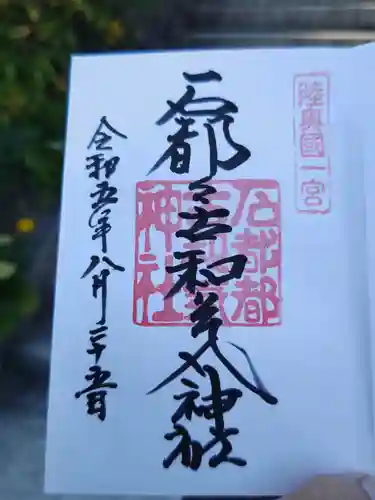 陸奥國一宮
石都々古和気神社
石都都古和氣神社
令和五年八月二十五日